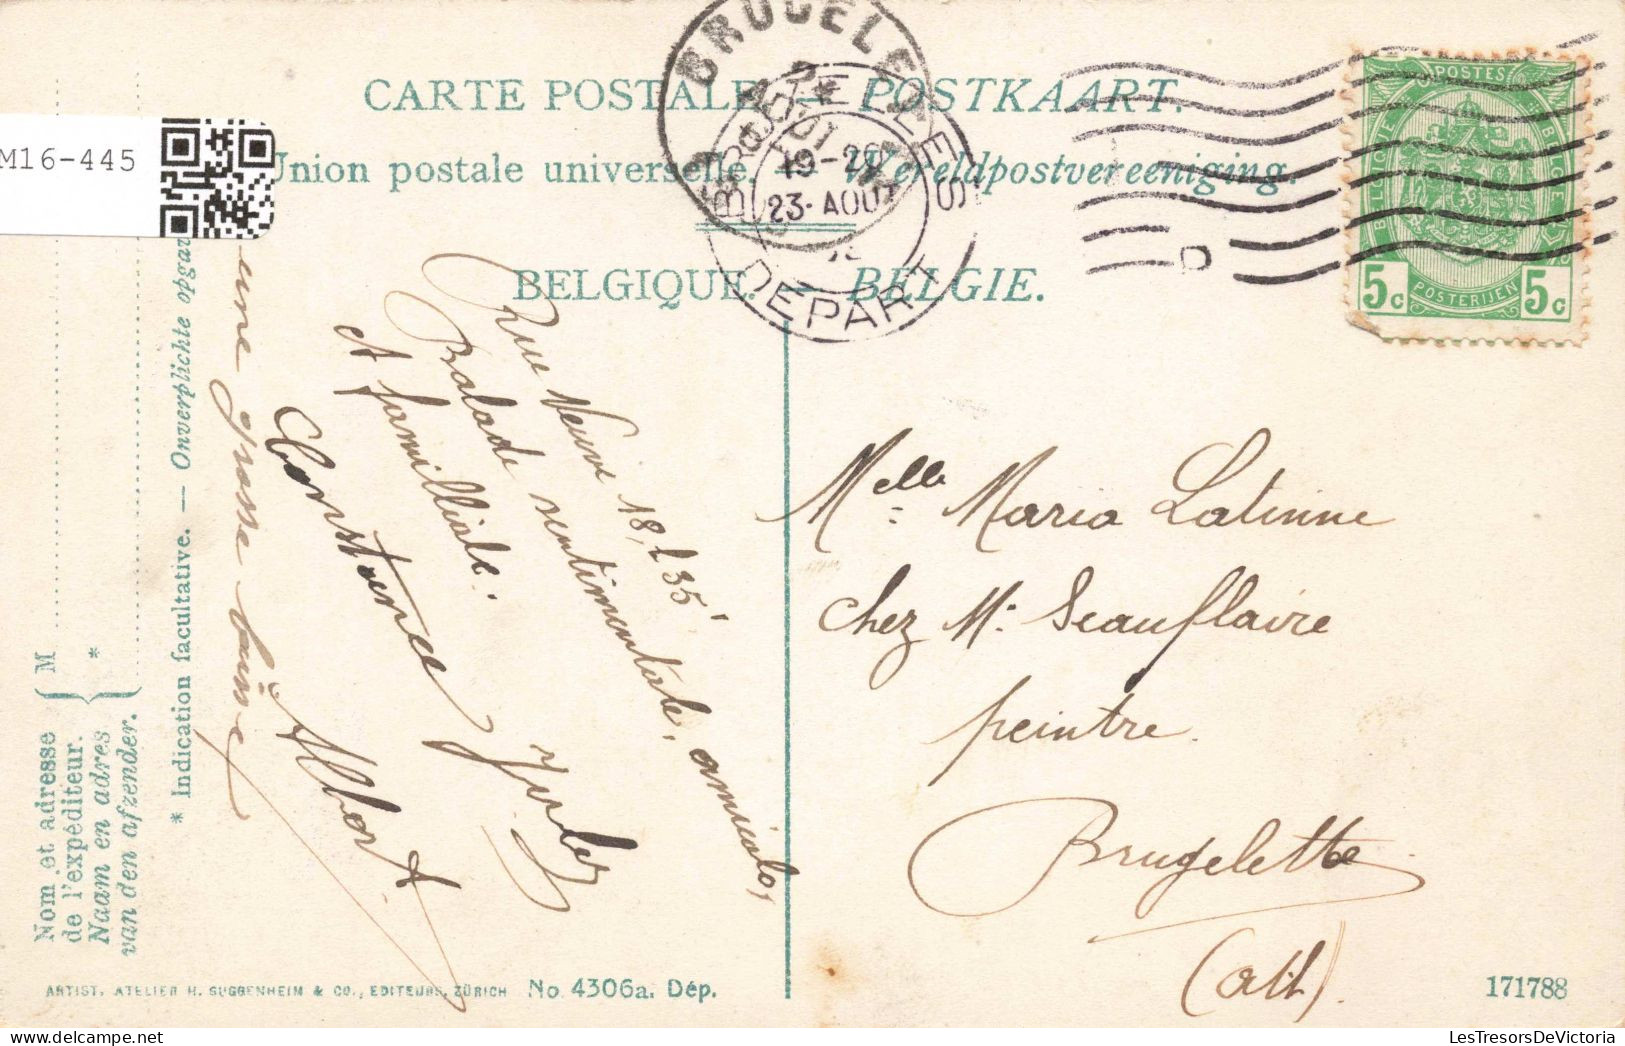 M16-445
CARTE POSTALE — POSTKAART.
Union postale universelle. — Wereldpostvereeniging.
BELGIQUE. — BELGIE.
POSTES
BELGIQUE
BELGIË
5c POSTERIJEN 5c
19-20
23·AOU
DEPART
Rue Neuve 18, 135'
Balade sentimentale, amicale,
et familliale.
Constance Jules
Albert
une grosse baise
Melle Maria Latinne
chez Mr. Seauflaire
peintre.
Brugelette
(Ath).
Nom et adresse
de l'expéditeur.
Naam en adres
van den afzender.
M
*
* Indication facultative. — Onverplichte opgav
ARTIST. ATELIER H. GUGGENHEIM & CO., EDITEURS, ZÜRICH No. 4306a. Dép.
171788
LesTresorsDeVictoria